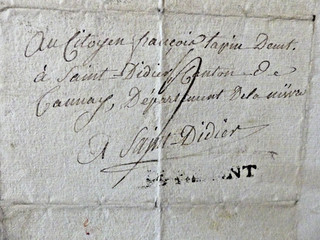 Au Citoyen françois tapin Demt.
à Saint-Didier, Canton de
Tannay, Département de la nièvre
A Saint-Didier